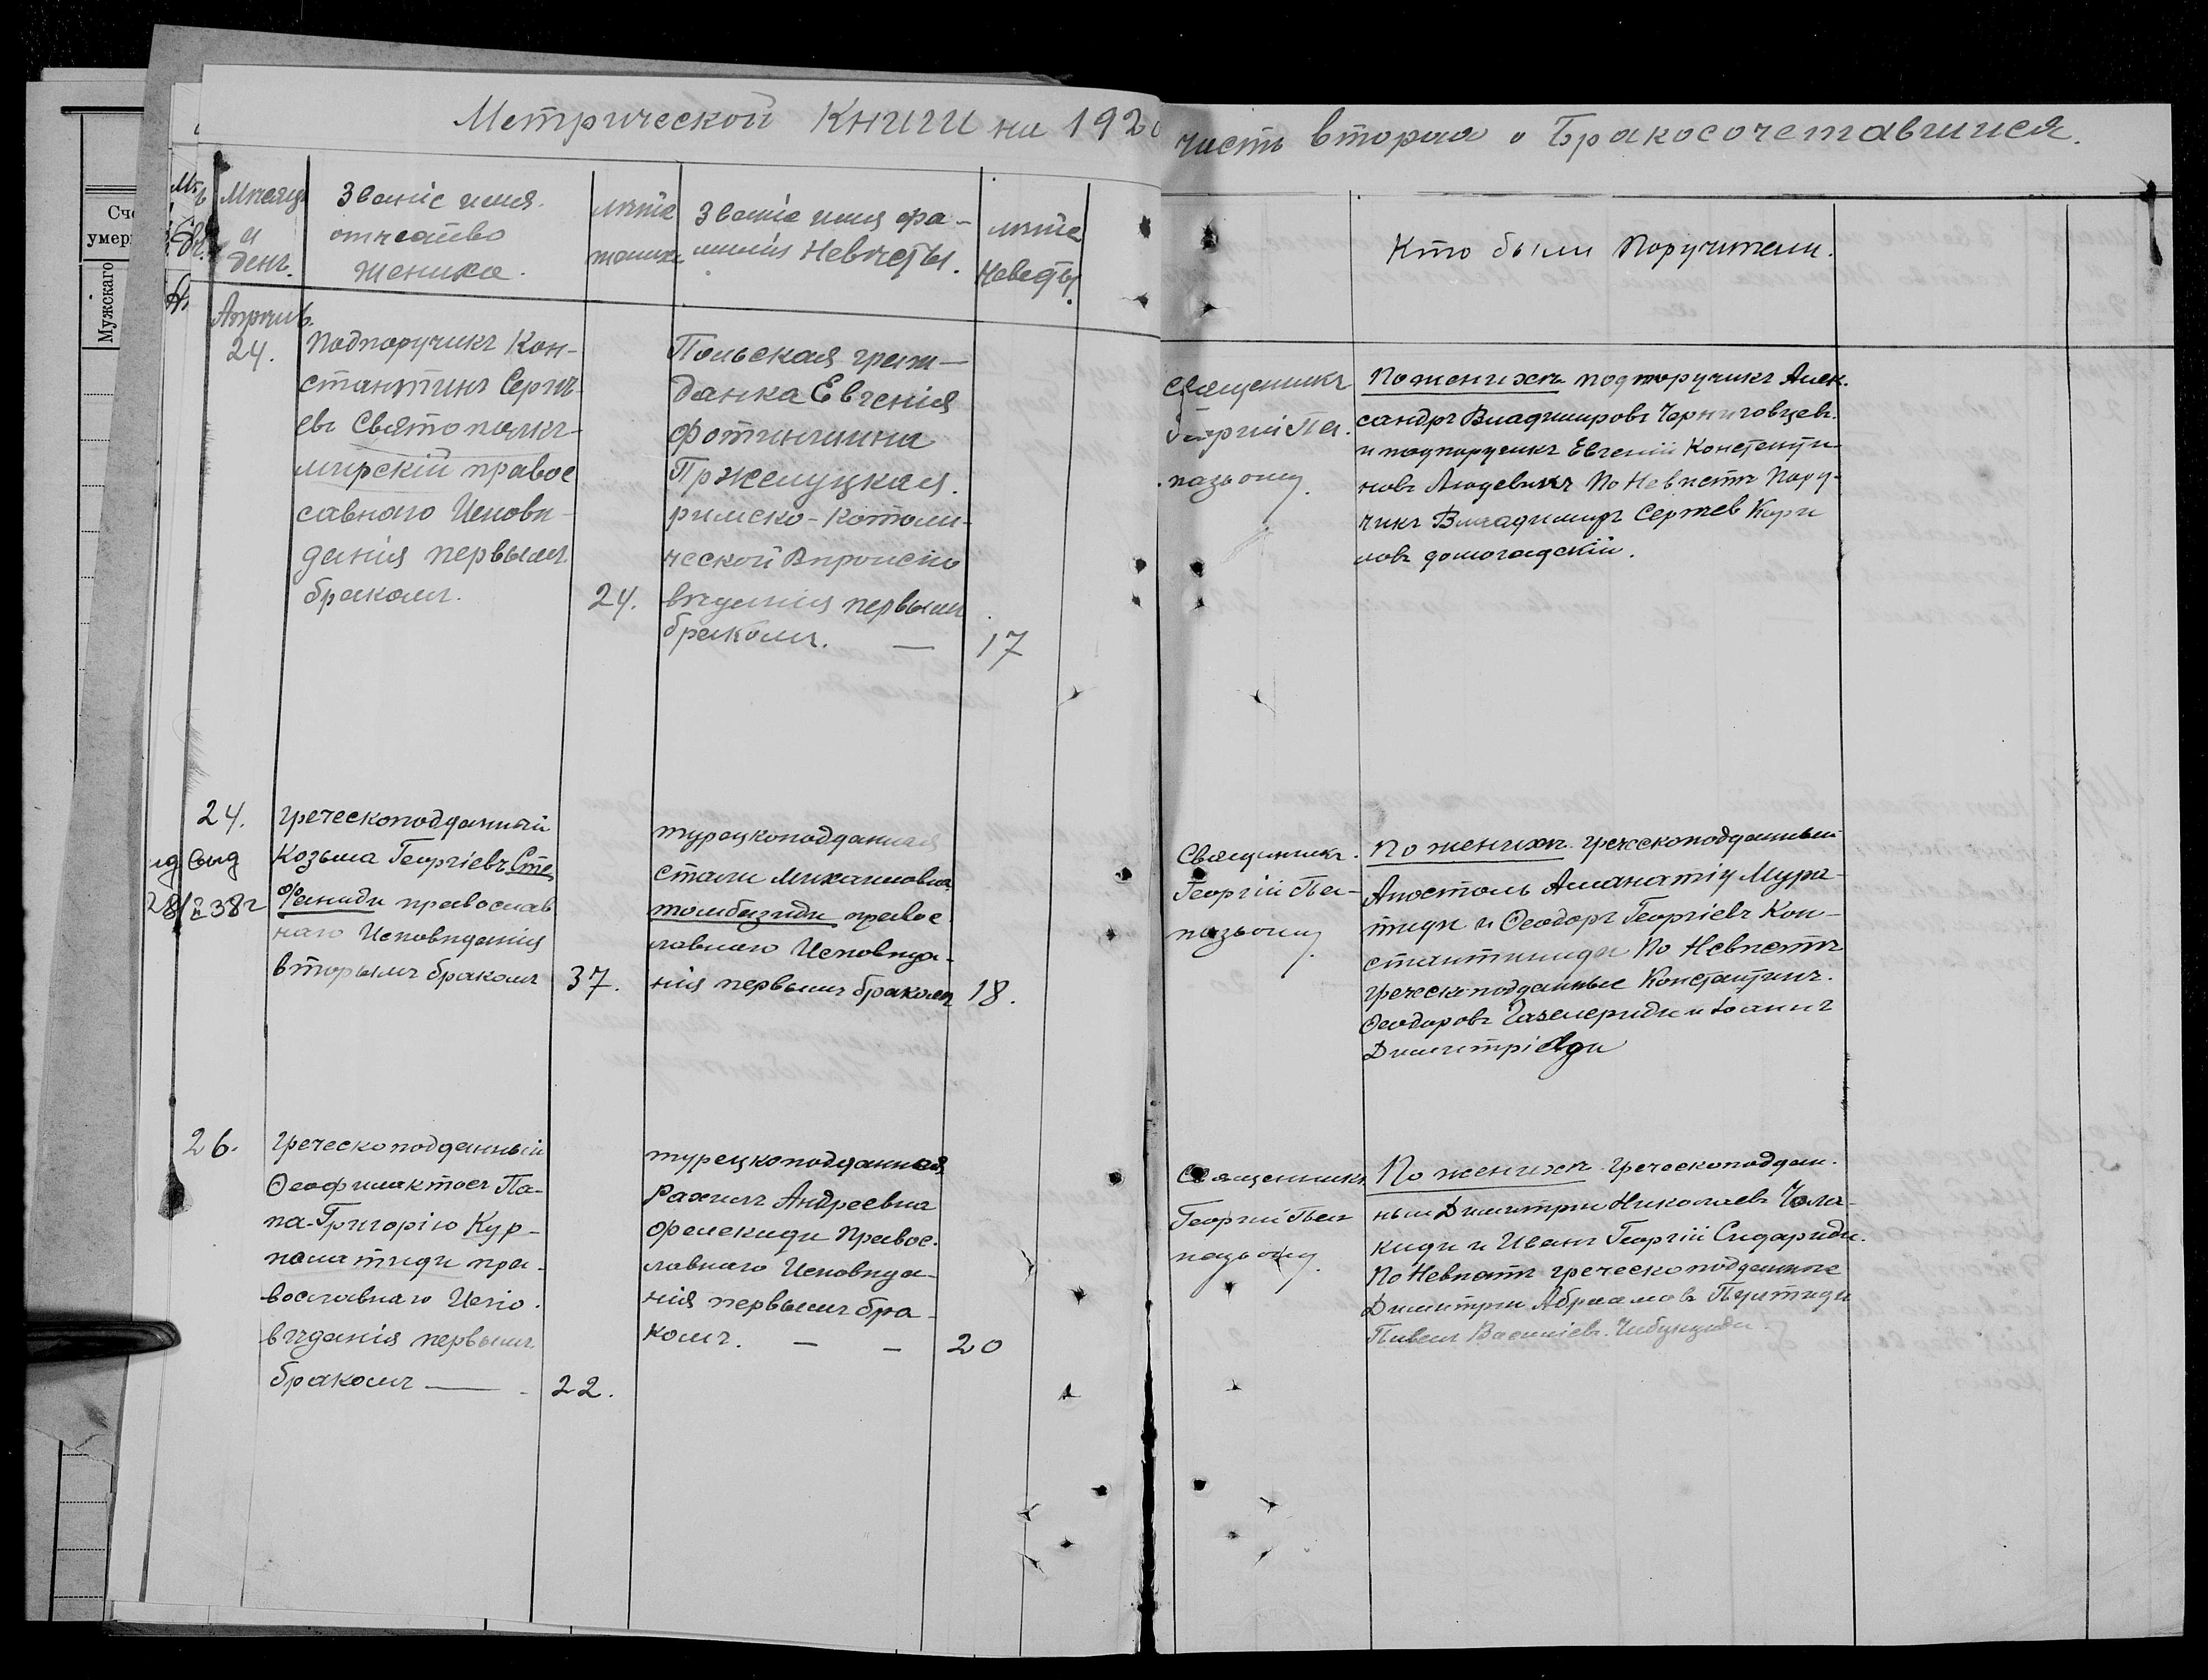 Метрической Книги на 1920
часть вторая о Бракосочетавшихся.
Счe
умер
Мужскаго
Мѣсяцъ
и
день.
Званіе имя
отчество
жениха.
лѣта
жениха
Званіе имя фа-
милія Невѣсты.
лѣта
Невесты.
Кто были Поручители.
Апрѣль.
24.
Подпоручикъ Кон-
стантинъ Сергѣ-
евъ Святополкъ-
мирскій правос
лавнаго Исповѣ-
данія первымъ
бракомъ.
24.
Польская граж-
данка Евгенія
Фотинишна
Пржелуцкая.
римско-Католи-
ческой Вѣроиспо
вѣданія первымъ
бракомъ. —
17
Священникъ
Георгій Па-
пазъ оглу.
По женихѣ подпоручикъ Алек-
сандръ Владимировъ Черниговцевъ.
и подпоручикъ Евгеній Константи-
новъ Людевикъ По Невѣстѣ Пору-
чикъ Владимиръ Сергеев Кири
ловъ домогадскій.
24.
Выд
28/II 38г
Греческоподданный
Козьма Георгіевъ Сте
фаниди православ
наго Исповѣданія
вторымъ бракомъ
37.
турецкоподданная
Стали Михаиловна
томбазиди правос
лавнаго Исповѣда-
нія первымъ бракомъ
18.
Священникъ.
Георгій Па-
пазъ оглу.
По женихѣ греческоподданный
Апостолъ Аманатіу Мура-
тиди и Ѳеодоръ Георгіевъ Кон-
стантиниди По Невѣстѣ
греческоподданные Константинъ.
Ѳеодоровъ Газелериди и Іоаннъ
Димитріади
26.
Греческоподданный
Ѳеофилактосъ Па-
па-Григорію Кур-
палатиди пра-
вославнаго Испо-
вѣданія первымъ
бракомъ — -
22.
турецкоподданная
Рахиль Андреевна
Фелекиди Правос-
лавнаго Исповѣда-
нія первымъ бра-
комъ. — —
20
Священникъ
Георгій Па-
пазъ оглу.
По женихѣ греческоподдан-
ныи Димитри Николаевъ Чола-
киди и Иванъ Георгій Сидариди.
По Невѣстѣ греческоподданные
Димитри Абраамовъ Пунтиди
Павелъ Василіевъ Чибунциди.